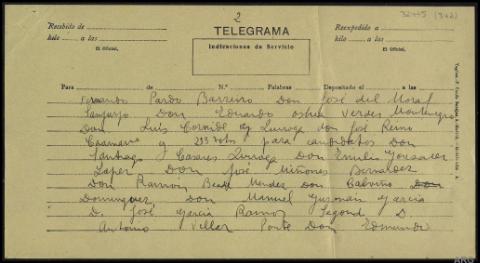 2
32445 (342)
Recibido de
hilo a las
El Oficial,
TELEGRAMA
Indicaciones de Servicio
Reexpedido a
hilo a las
El Oficial,
Para de N.º Palabras Depositado el a las
Fernando Pardo Barreiro Don José del Moral
Sanjurjo Don Eduardo Verdes Montenegro
Don Luis Cornide Quiroga don José Reino
Caamaño y 233 votos para candidatos Don
Santiago Casares Quiroga Don Emilio González
López Don José Miñones Bernaldez
Don Ramón Mendez Don Don
Dominguez Don Manuel Guzmán García
D. José García Ramos Segond D.
Antonio Villar Ponte Don Edmundo